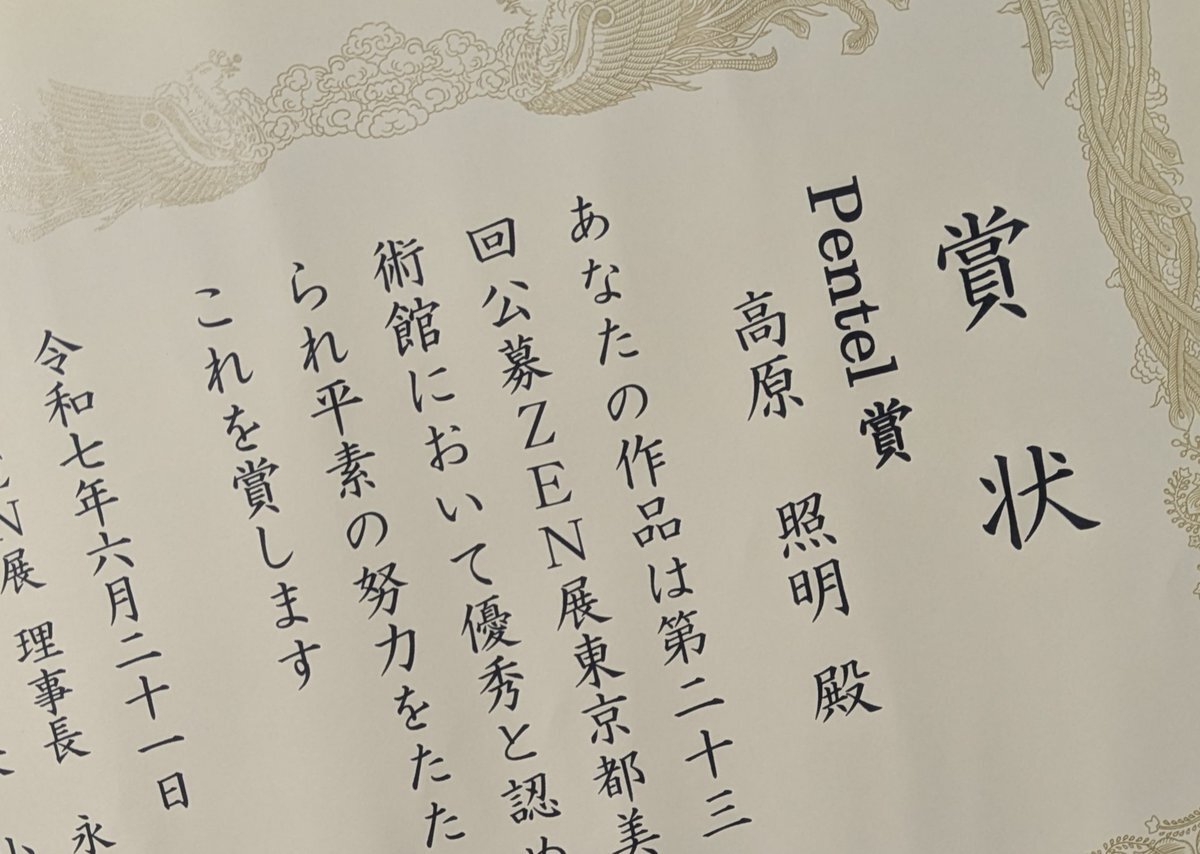 賞状
Pentel賞
高原 照明 殿
あなたの作品は第二十三
回公募ZEN展東京都美
術館において優秀と認め
られ平素の努力をたた
これを賞します
令和七年六月二十一日
N展 理事長 永